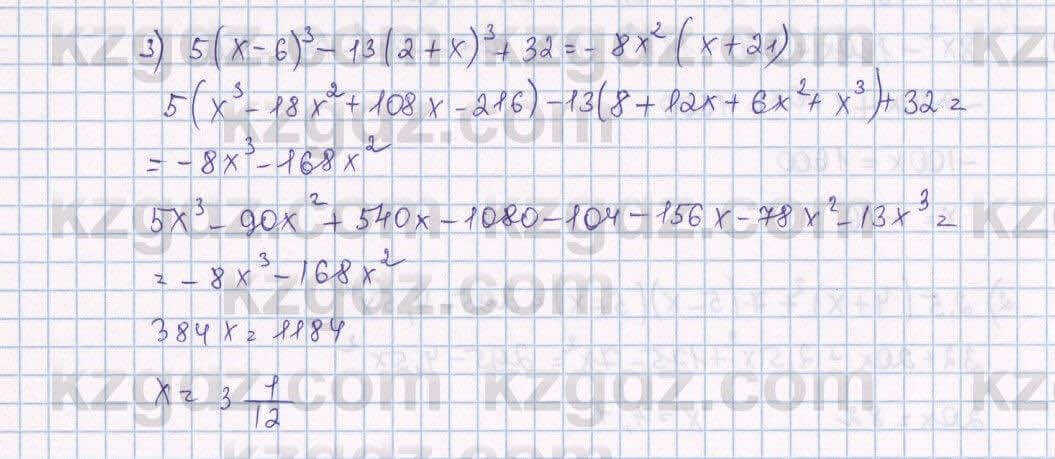 3) 5(x-6)³-13(2+x)³+32=-8x²(x+21)
5(x³-18x²+108x-216)-13(8+12x+6x²+x³)+32=
=-8x³-168x²
5x³-90x²+540x-1080-104-156x-78x²-13x³=
=-8x³-168x²
384x=1184
x=3 1/12
kzgdz.com